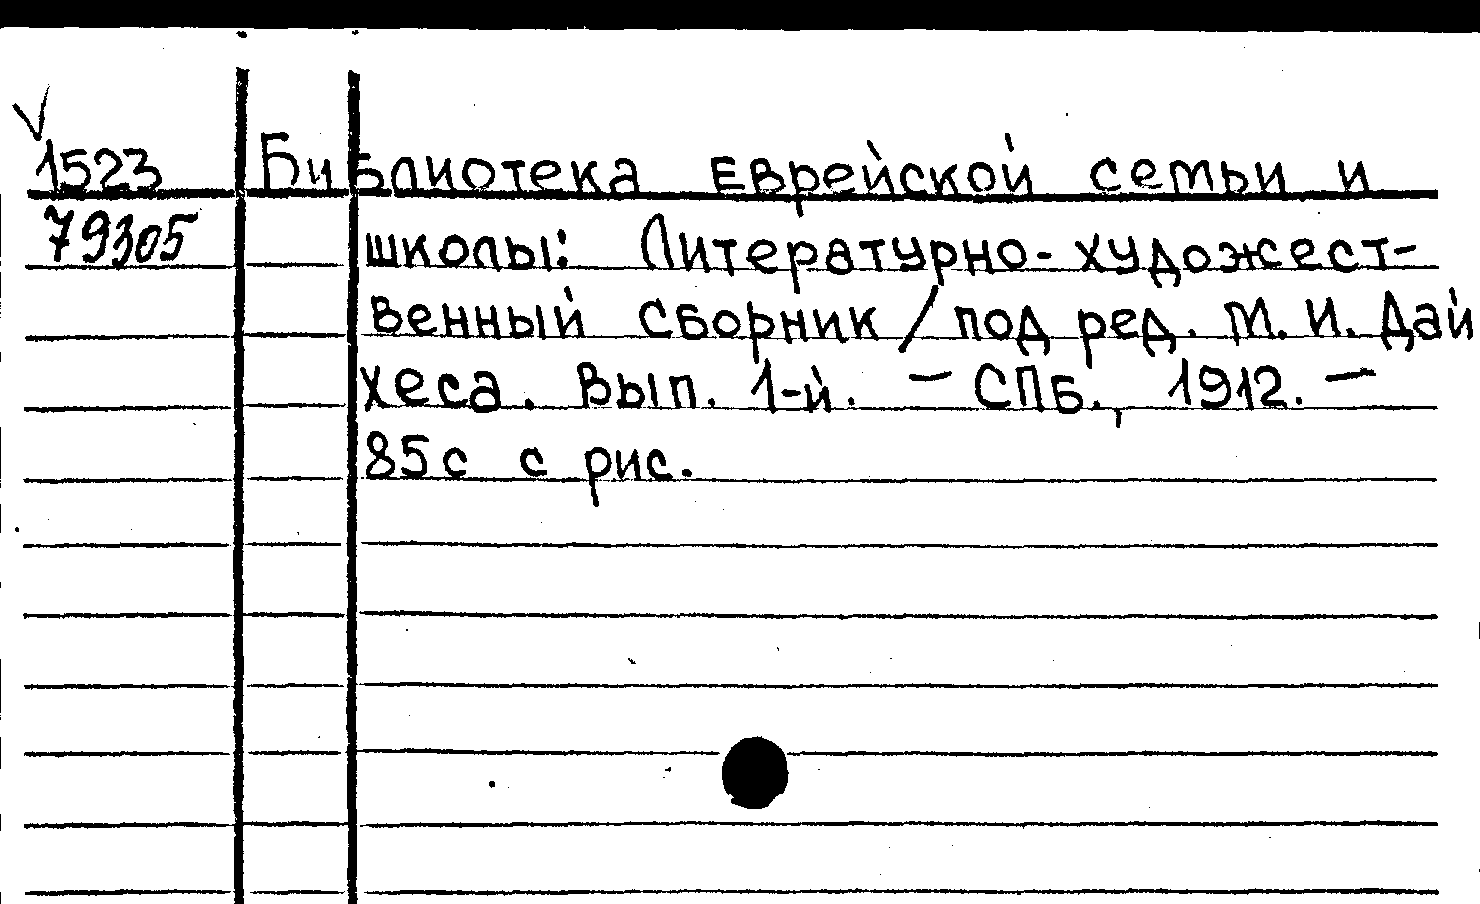 V
1523 Библиотека еврейской семьи и
79305 школы: Литературно-художест-
венный сборник / под ред. М. И. Дай
хеса. Вып. 1-й. — СПб., 1912. —
85с с рис.